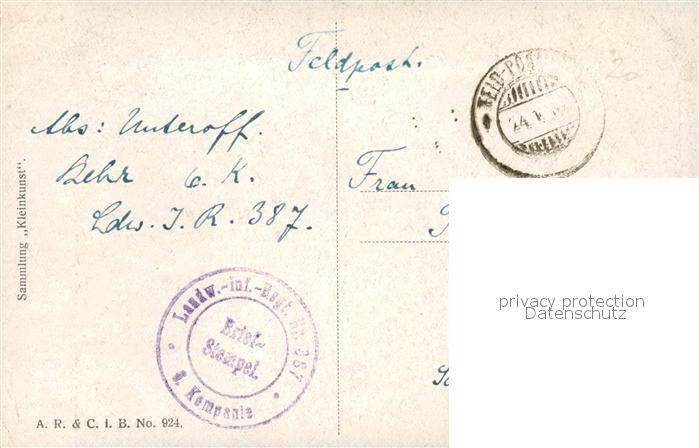 Feldpost.
FELD-POST
24. V.
Abs: Unteroff.
Behr 6. K.
Ldw. I. R. 387.
Frau
Sammlung „Kleinkunst“.
Landw.-Inf.-Regt. Nr. 387
Brief-
Stempel.
6. Kompanie
A. R. & C. i. B. No. 924.
privacy protection
Datenschutz